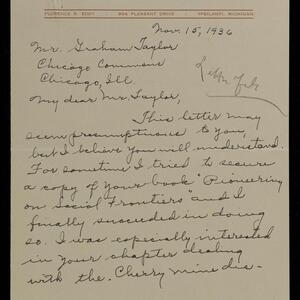 FLORENCE B. EDDY 904 PLEASANT DRIVE YPSILANTI, MICHIGAN
Nov. 15, 1936
Mr. Graham Taylor
Chicago Commons
Chicago, Ill.
My dear Mr. Taylor,
This letter may
seem presumptuous to you,
but I believe you will understand.
For sometime I tried to secure
a copy of your book "Pioneering
on Social Frontiers" and I
finally succeeded in doing
so. I was especially interested
in your chapter dealing
with the Cherry mine dis-